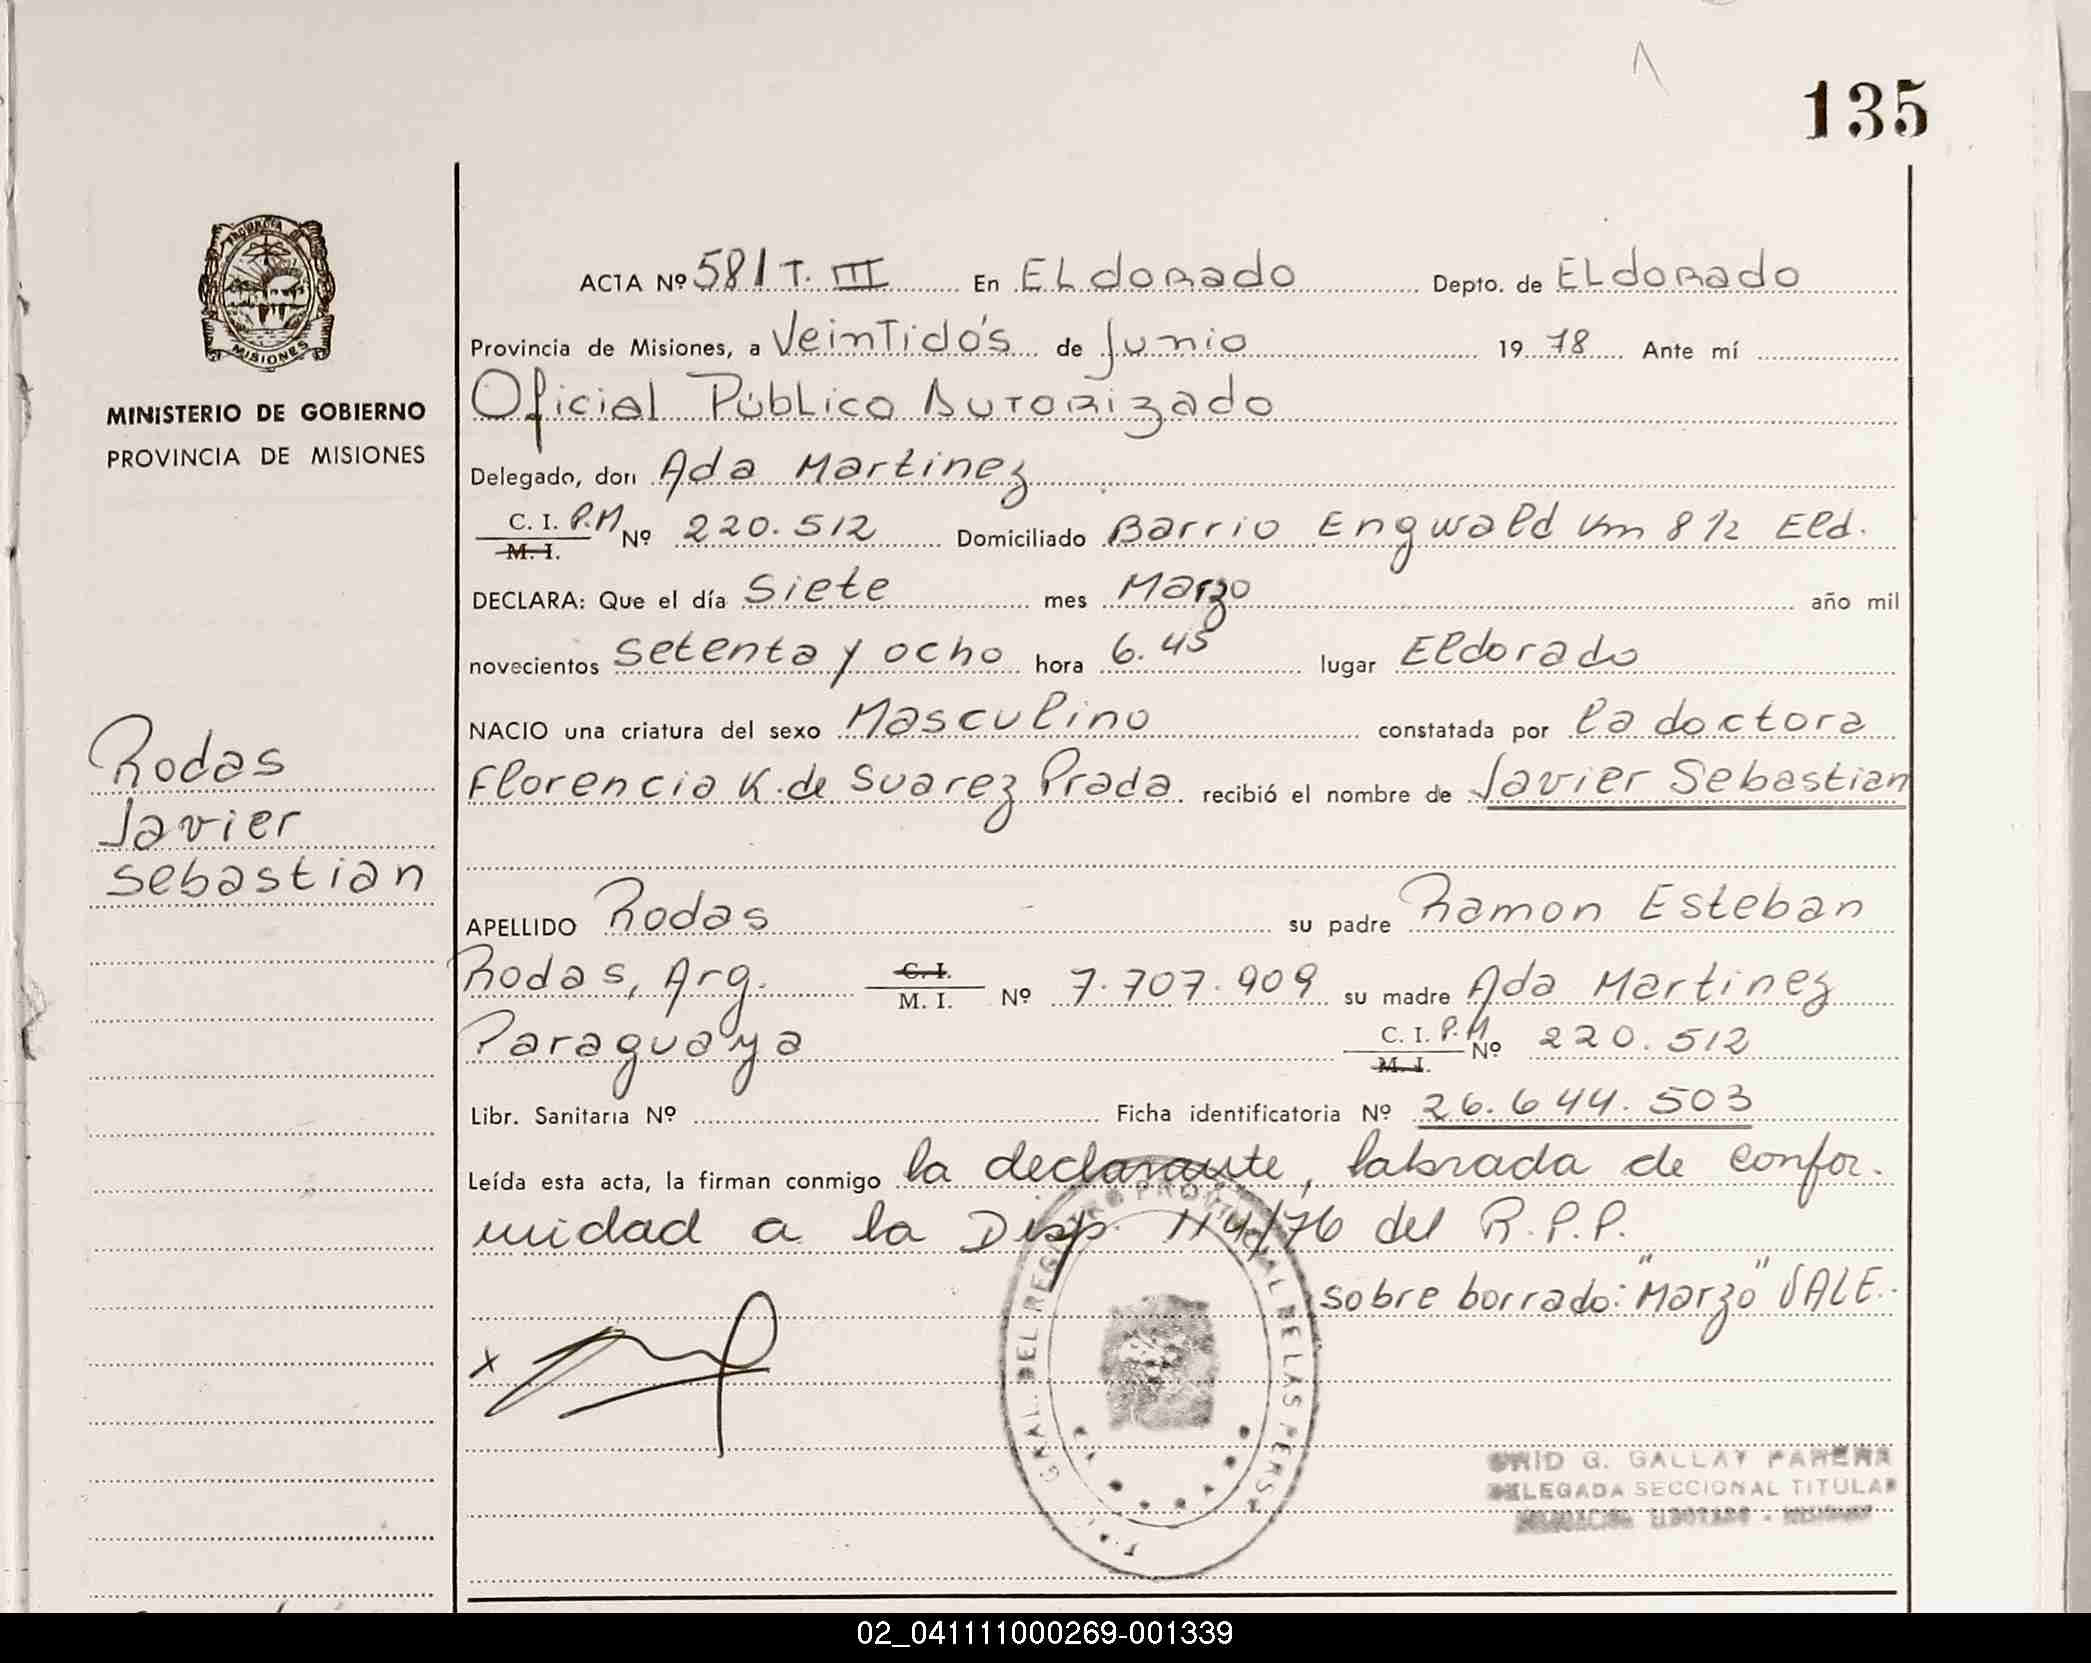 135
PROVINCIA DE
MISIONES
MINISTERIO DE GOBIERNO
PROVINCIA DE MISIONES
Rodas
Javier
Sebastian
ACTA Nº 581 T. III En ELdorado Depto. de ELdorado
Provincia de Misiones, a VeinTidós de Junio 19 78 Ante mí
Oficial Público Autorizado
Delegado, don Ada Martinez
C. I. P.M Nº 220.512 Domiciliado Barrio Engwald Km 8 1/2 Eld.
M. I.
DECLARA: Que el día Siete mes Marzo año mil
novecientos setenta y ocho hora 6.45 lugar Eldorado
NACIO una criatura del sexo Masculino constatada por la doctora
Florencia K. de Suarez Prada recibió el nombre de Javier Sebastian
APELLIDO Rodas su padre Ramon Esteban
Rodas, Arg. C. I. M. I. Nº 7.707.909 su madre Ada Martinez
Paraguaya C. I. P.M M. I. Nº 220.512
Libr. Sanitaria Nº Ficha identificatoria Nº 26.644.503
Leída esta acta, la firman conmigo la declarante, labrada de confor-
midad a la Disp. 114/76 del R.P.P.
sobre borrado: "Marzo" VALE.-
x
GRAL. DEL REGISTRO PROVINCIAL DE LAS PERS
G. GALLAY PARERA
DELEGADA SECCIONAL TITULAR
ELDORADO - MISIONES
02_041111000269-001339